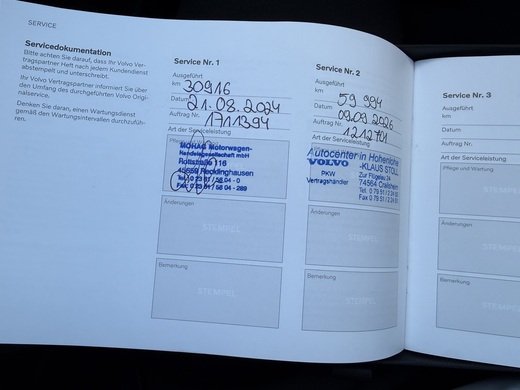 SERVICE
Servicedokumentation
Bitte achten Sie darauf, dass Ihr Volvo Ver-
tragspartner Heft nach jedem Kundendienst
abstempelt und unterschreibt.
Ihr Volvo Vertragspartner informiert Sie über
den Umfang des durchgeführten Volvo Origi-
nalservice.
Denken Sie daran, einen Wartungsdienst
gemäß den Wartungsintervallen durchzufüh-
ren.
Service Nr. 1
Ausgeführt
km 30916
Datum 21.08.2024
Auftrag Nr. 1711394
Art der Serviceleistung
MOHAG Motorwagen-
Handelsgesellschaft mbH
Rottstraße 116
45659 Recklinghausen
Änderungen
STEMPEL
Bemerkung
STEMPEL
Service Nr. 2
Ausgeführt
km 59 994
Datum 09.09.2026
Auftrag Nr. 1212701
Art der Serviceleistung
Autocenter in Hohenlohe
VOLVO -KLAUS STOLL
PKW Zur Flügelau 24
Vertragshändler 74564 Crailsheim
Änderungen
STEMPEL
Bemerkung
STEMPEL
Service Nr. 3
Ausgeführt
km
Datum
Auftrag Nr.
Art der Serviceleistung
Pflege und Wartung
STEMPEL
Änderungen
STEMPEL
Bemerkung
STEMPEL